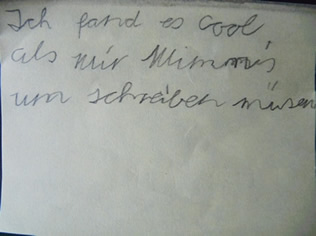 Ich fand es cool
als mir Mimmis
um schreiben müsen